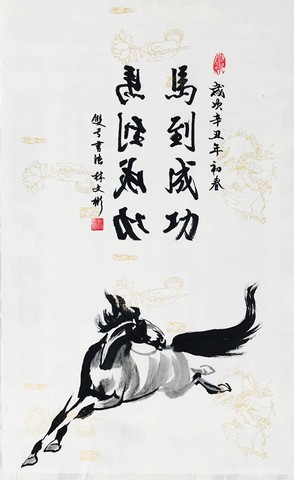 歲次辛丑年初春
馬到成功
馬到成功
書法林文彬